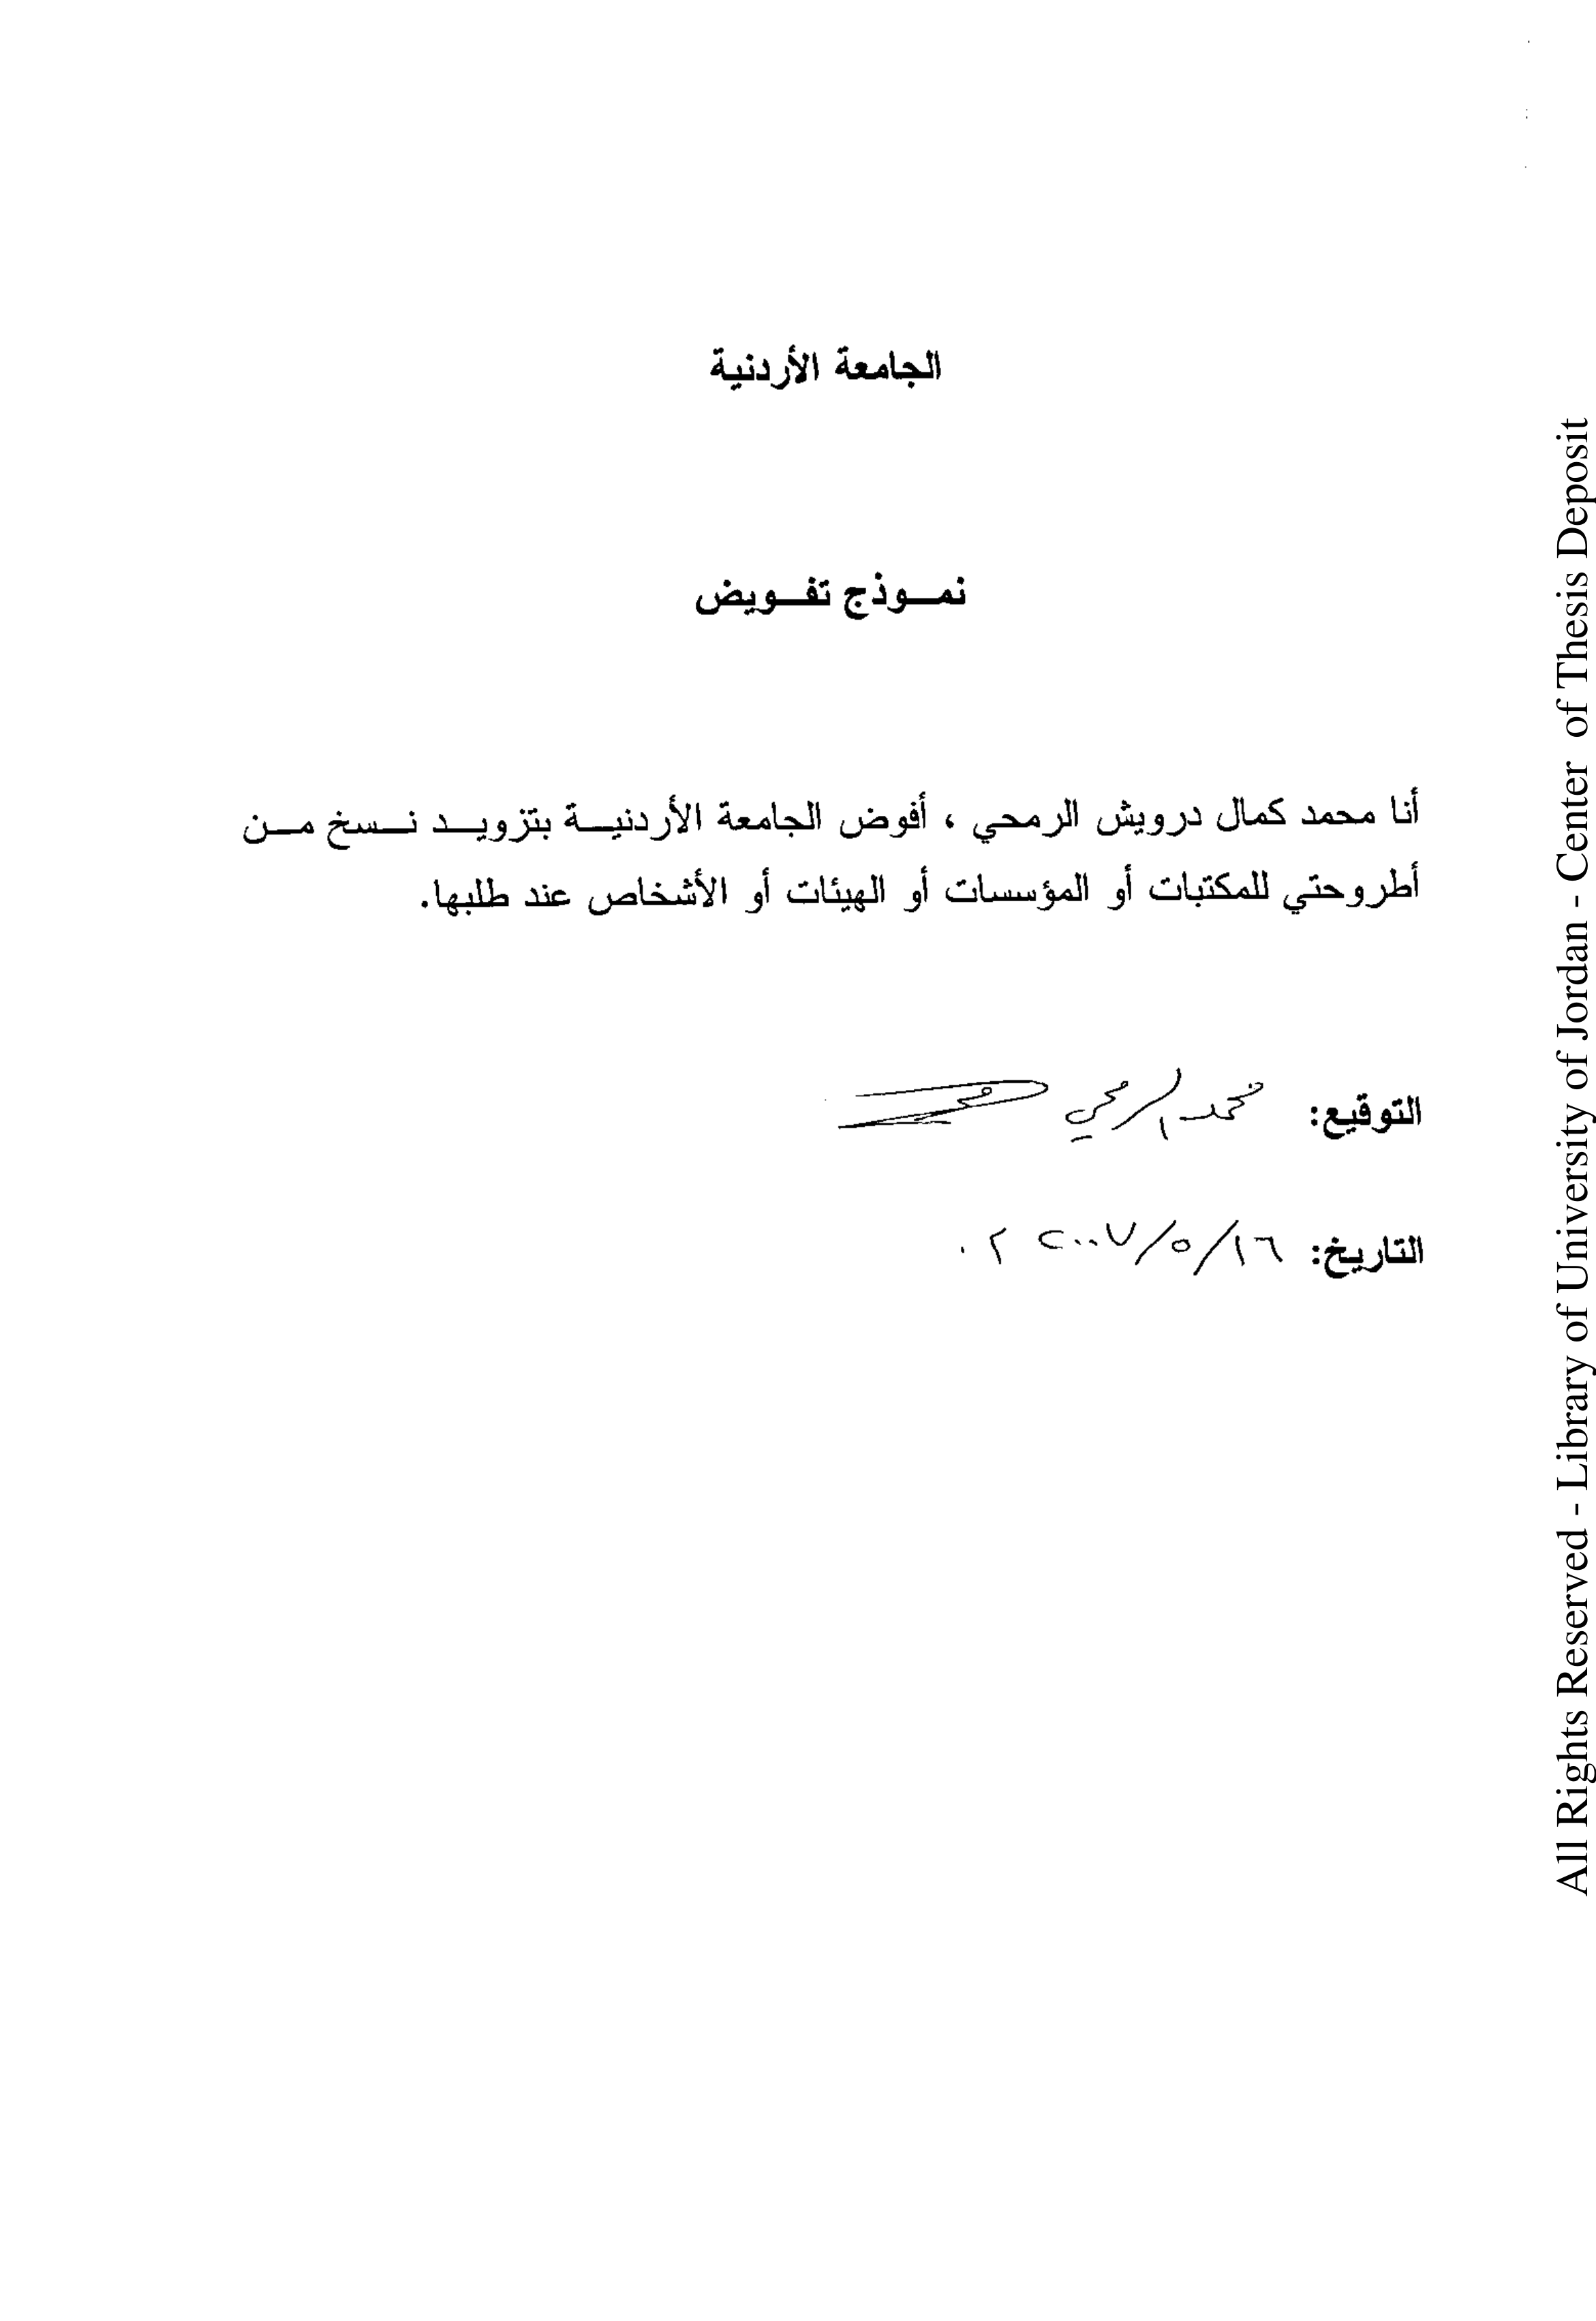 الجامعة الأردنية
نموذج تفويض
أنا محمد كمال درويش الرمحي ، أفوض الجامعة الأردنية بتزويد نسخ من
أطروحتي للمكتبات أو المؤسسات أو الهيئات أو الأشخاص عند طلبها.
التوقيع: محمد الرمحي
التاريخ: ١٦/٥/٢٠٠٧ م.
All Rights Reserved - Library of University of Jordan - Center of Thesis Deposit